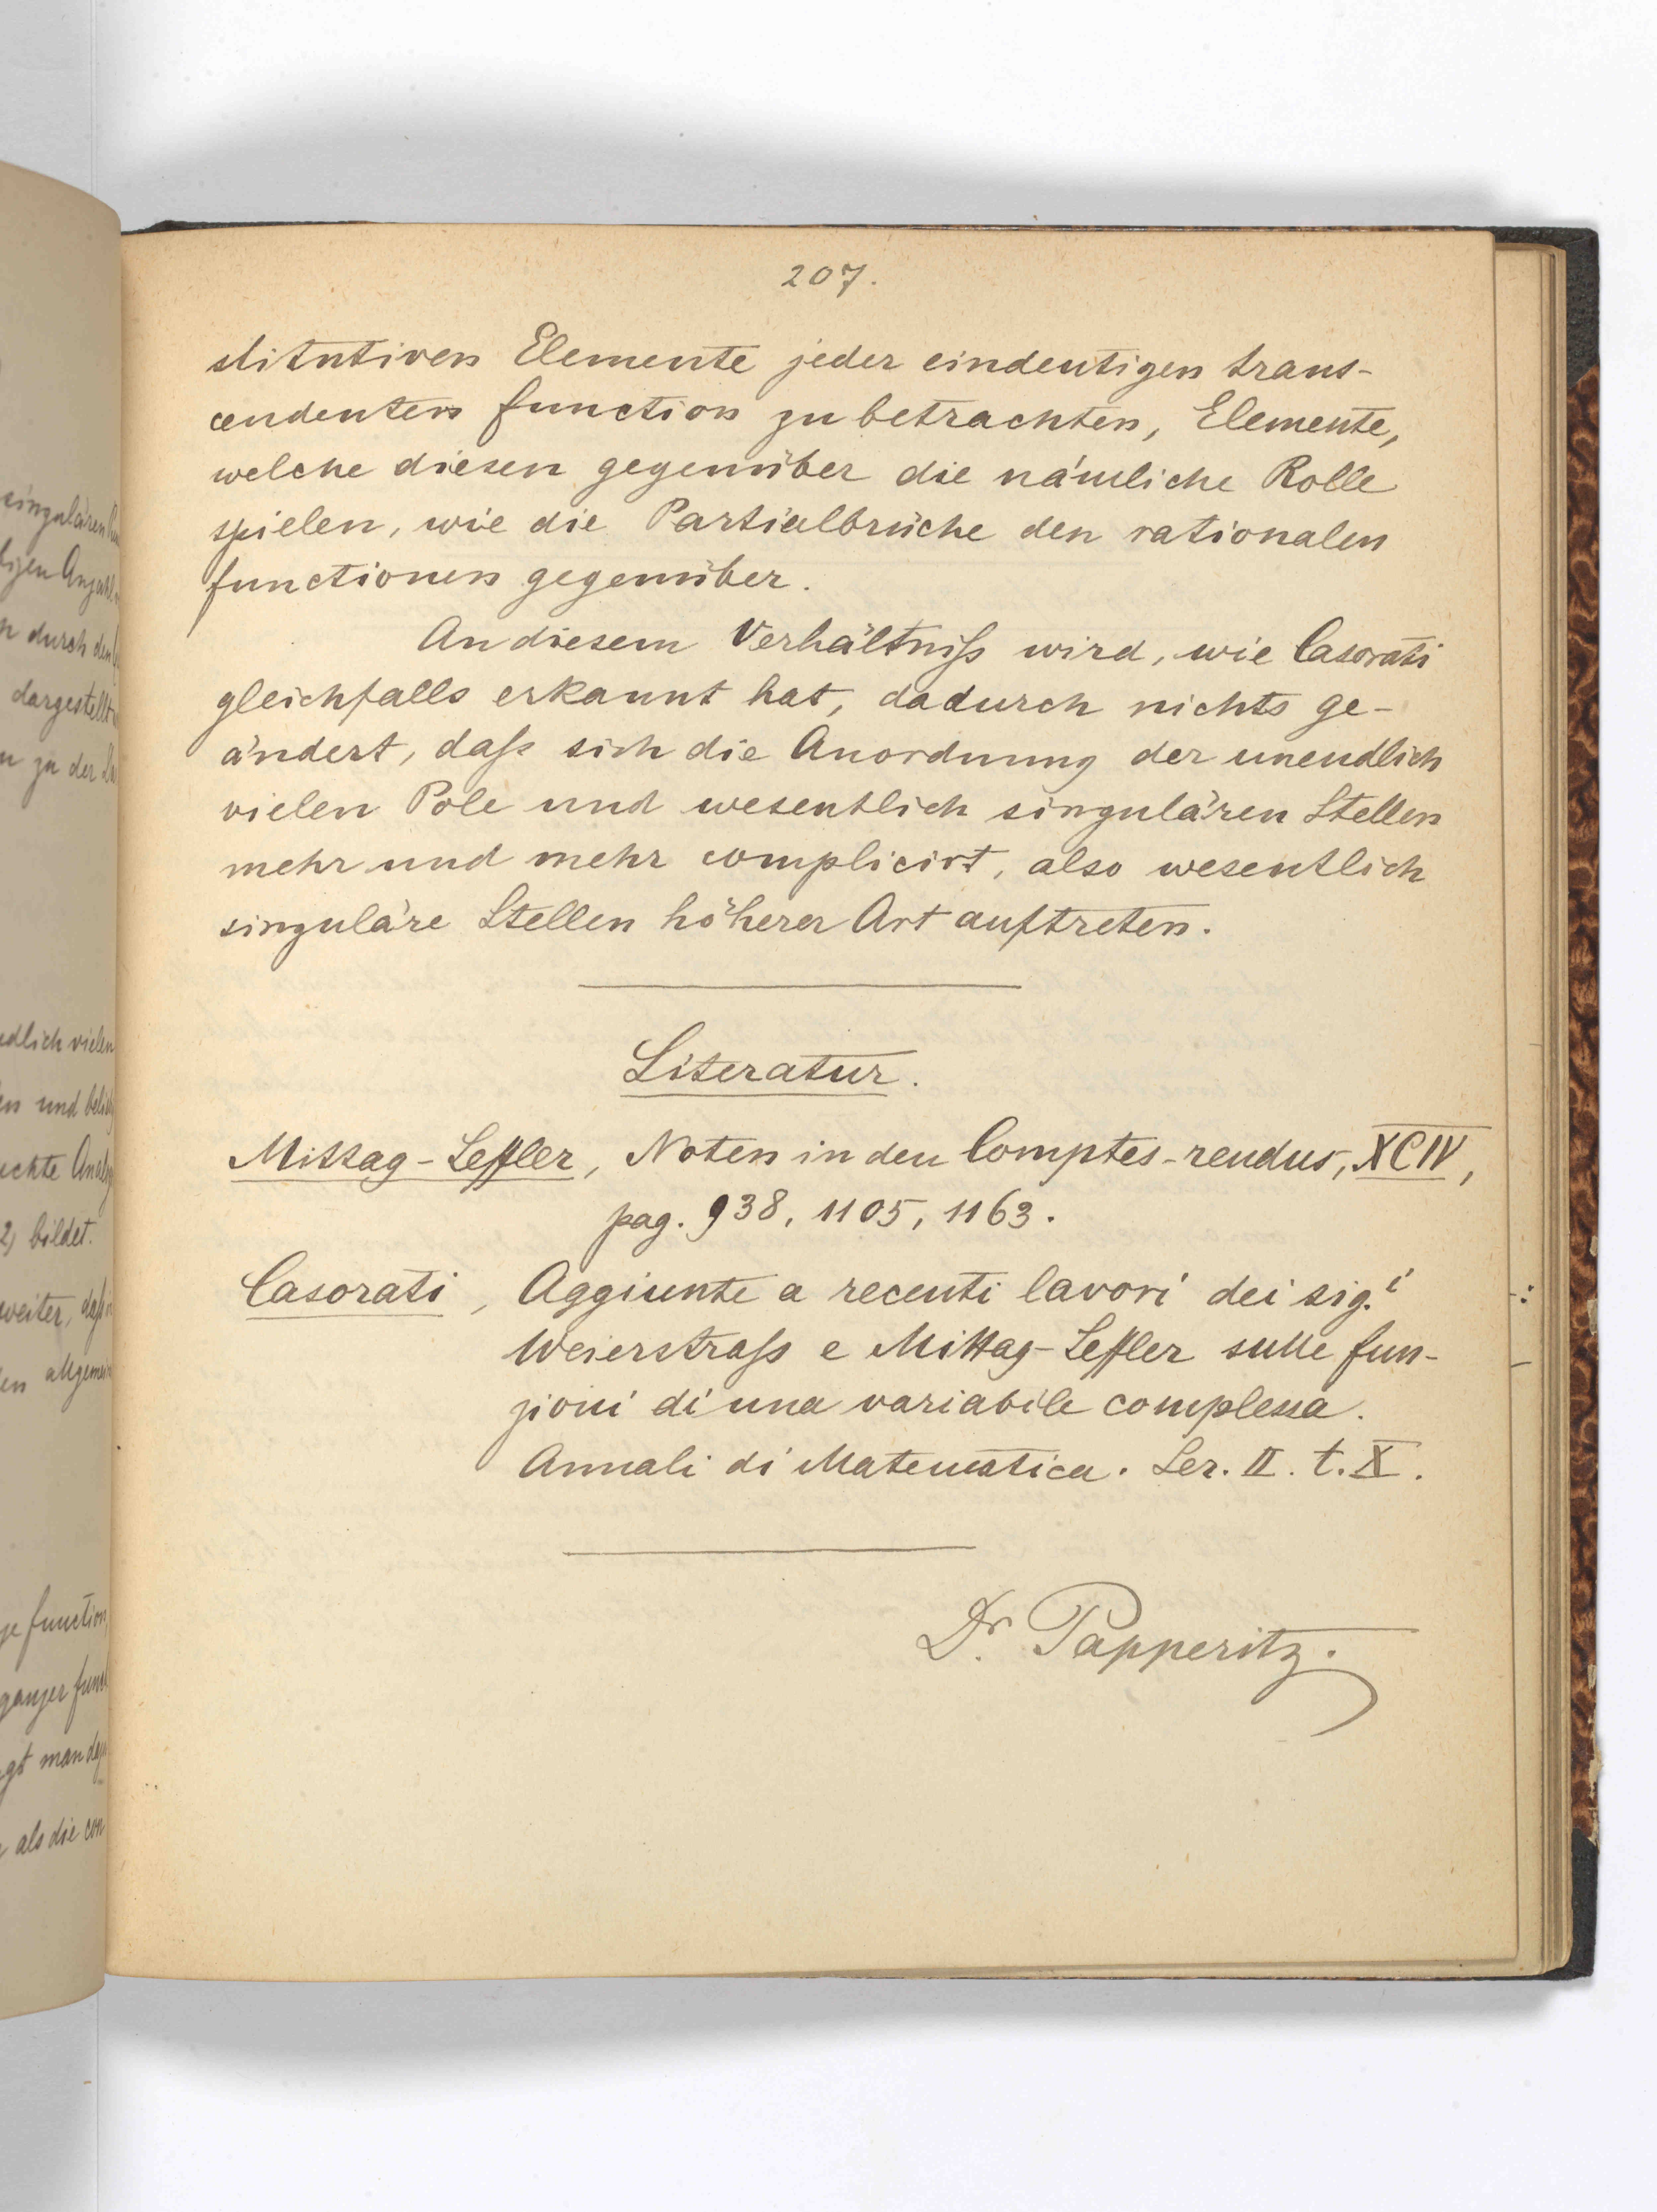 singulären
bigen Anzahl
n durch den
dargestellt
n zu der
ndlich vielen
en und
2) bildet.
weiter, daß
en allgemein
ge function
ganzer
gt man
als die con
207.
stitutiven Elemente jeder eindeutigen trans-
cendenten function zu betrachten, Elemente,
welche diesen gegenüber die nämliche Rolle
spielen, wie die Partialbrüche den rationalen
functionen gegenüber.
An diesem Verhältniß wird, wie Casorati
gleichfalls erkannt hat, dadurch nichts ge-
ändert, daß sich die Anordnung der unendlich
vielen Pole und wesentlich singulären Stellen
mehr und mehr complicirt, also wesentlich
singuläre Stellen höherer Art auftreten.
Literatur.
Mittag-Leffler, Noten in den Comptes-rendus, XCIV,
pag. 938, 1105, 1163.
Casorati, Aggiunte a recenti lavori dei sig.i
Weierstraß e Mittag-Leffler sulle fun-
zioni di una variabile complessa.
Annali di Matematica. Ser. II. t. X.
Dr. Papperitz.